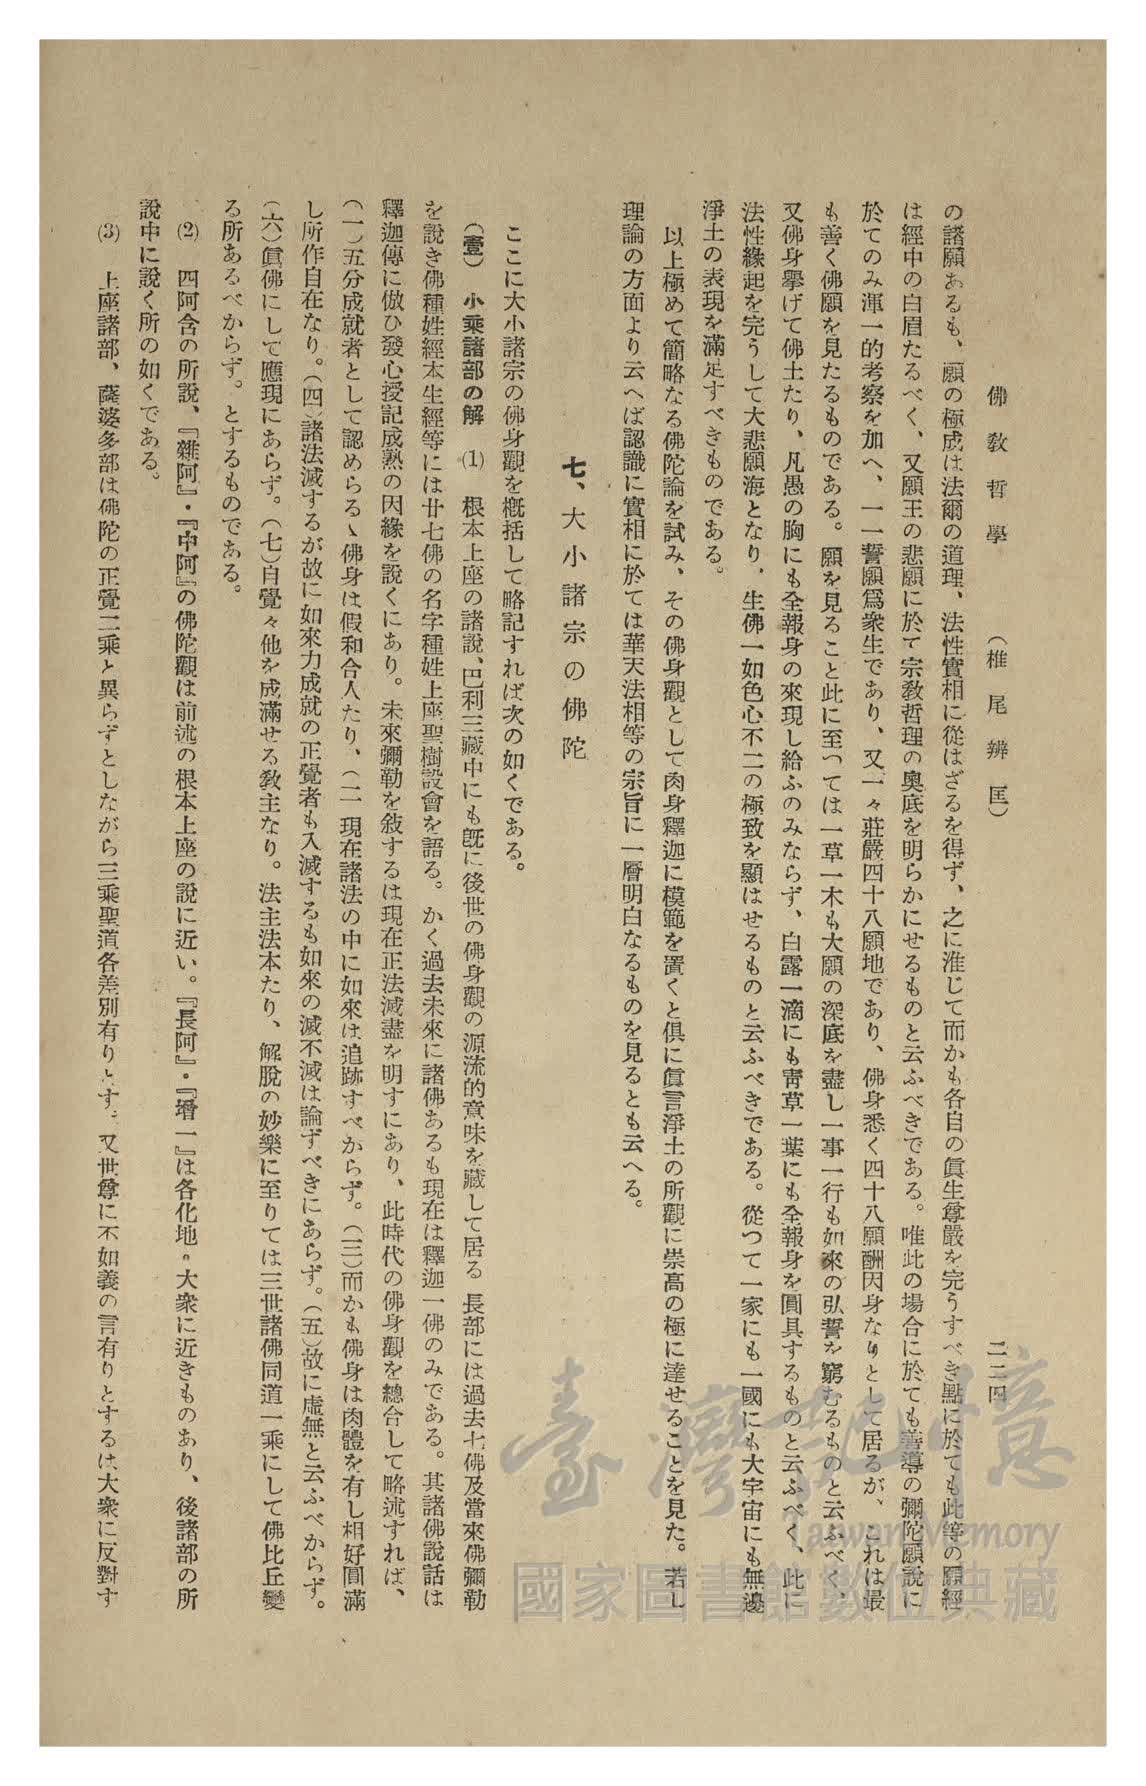 佛教哲學　（椎尾辨匡）　二二四
の諸願あるも、願の極成は法爾の道理、法性實相に從はざるを得ず、之に准じて而かも各自の眞生尊嚴を完うすべき點に於ても此等の願經
は經中の白眉たるべく、又願王の悲願に於て宗教哲理の奧底を明らかにせるものと云ふべきである。唯此の場合に於ても善導の彌陀願說に
於てのみ渾一的考察を加へ、一一誓願爲衆生であり、又一々莊嚴四十八願地であり、佛身悉く四十八願酬因身なりとして居るが、これは最
も善く佛願を見たるものである。願を見ること此に至つては一草一木も大願の深底を盡し一事一行も如來の弘誓を窮むるものと云ふべく、
又佛身擧げて佛土たり、凡愚の胸にも全報身の來現し給ふのみならず、白露一滴にも靑草一葉にも全報身を圓具するものと云ふべく、此に
法性緣起を完うして大悲願海となり、生佛一如色心不二の極致を顯はせるものと云ふべきである。從つて一家にも一國にも大宇宙にも無邊
淨土の表現を滿足すべきものである。
以上極めて簡略なる佛陀論を試み、その佛身觀として肉身釋迦に模範を置くと俱に眞言淨土の所觀に崇高の極に達せることを見た。若し
理論の方面より云へば認識に實相に於ては華天法相等の宗旨に一層明白なるものを見るとも云へる。
七、大小諸宗の佛陀
ここに大小諸宗の佛身觀を槪括して略記すれば次の如くである。
（壹）　小乘諸部の解　(1)　根本上座の諸說、巴利三藏中にも旣に後世の佛身觀の源流的意味を藏して居る　長部には過去七佛及當來佛彌勒
を說き佛種姓經本生經等には廿七佛の名字種姓上座聖樹設會を語る。かく過去未來に諸佛あるも現在は釋迦一佛のみである。其諸佛說話は
釋迦傳に倣ひ發心授記成熟の因緣を說くにあり。未來彌勒を敍するは現在正法滅盡を明すにあり、此時代の佛身觀を總合して略述すれば、
（一）五分成就者として認めらるゝ佛身は假和合人たり、（二）現在諸法の中に如來は追跡すべからず。（三）而かも佛身は肉體を有し相好圓滿
し所作自在なり。（四）諸法滅するが故に如來力成就の正覺者も入滅するも如來の滅不滅は論ずべきにあらず。（五）故に虛無と云ふべからず。
（六）眞佛にして應現にあらず。（七）自覺々他を成滿せる敎主なり。法主法本たり、解脫の妙樂に至りては三世諸佛同道一乘にして佛比丘變
る所あるべからず。とするものである。
(2)　四阿含の所說、『雜阿』・『中阿』の佛陀觀は前述の根本上座の說に近い。『長阿』・『增一』は各化地・大衆に近きものあり、後諸部の所
說中に說く所の如くである。
(3)　上座諸部、薩婆多部は佛陀の正覺二乘と異らずとしながら三乘聖道各差別有りとす。又世尊に不如義の言有りとするは大衆に反對す
臺灣記憶
Taiwan Memory
國家圖書館數位典藏